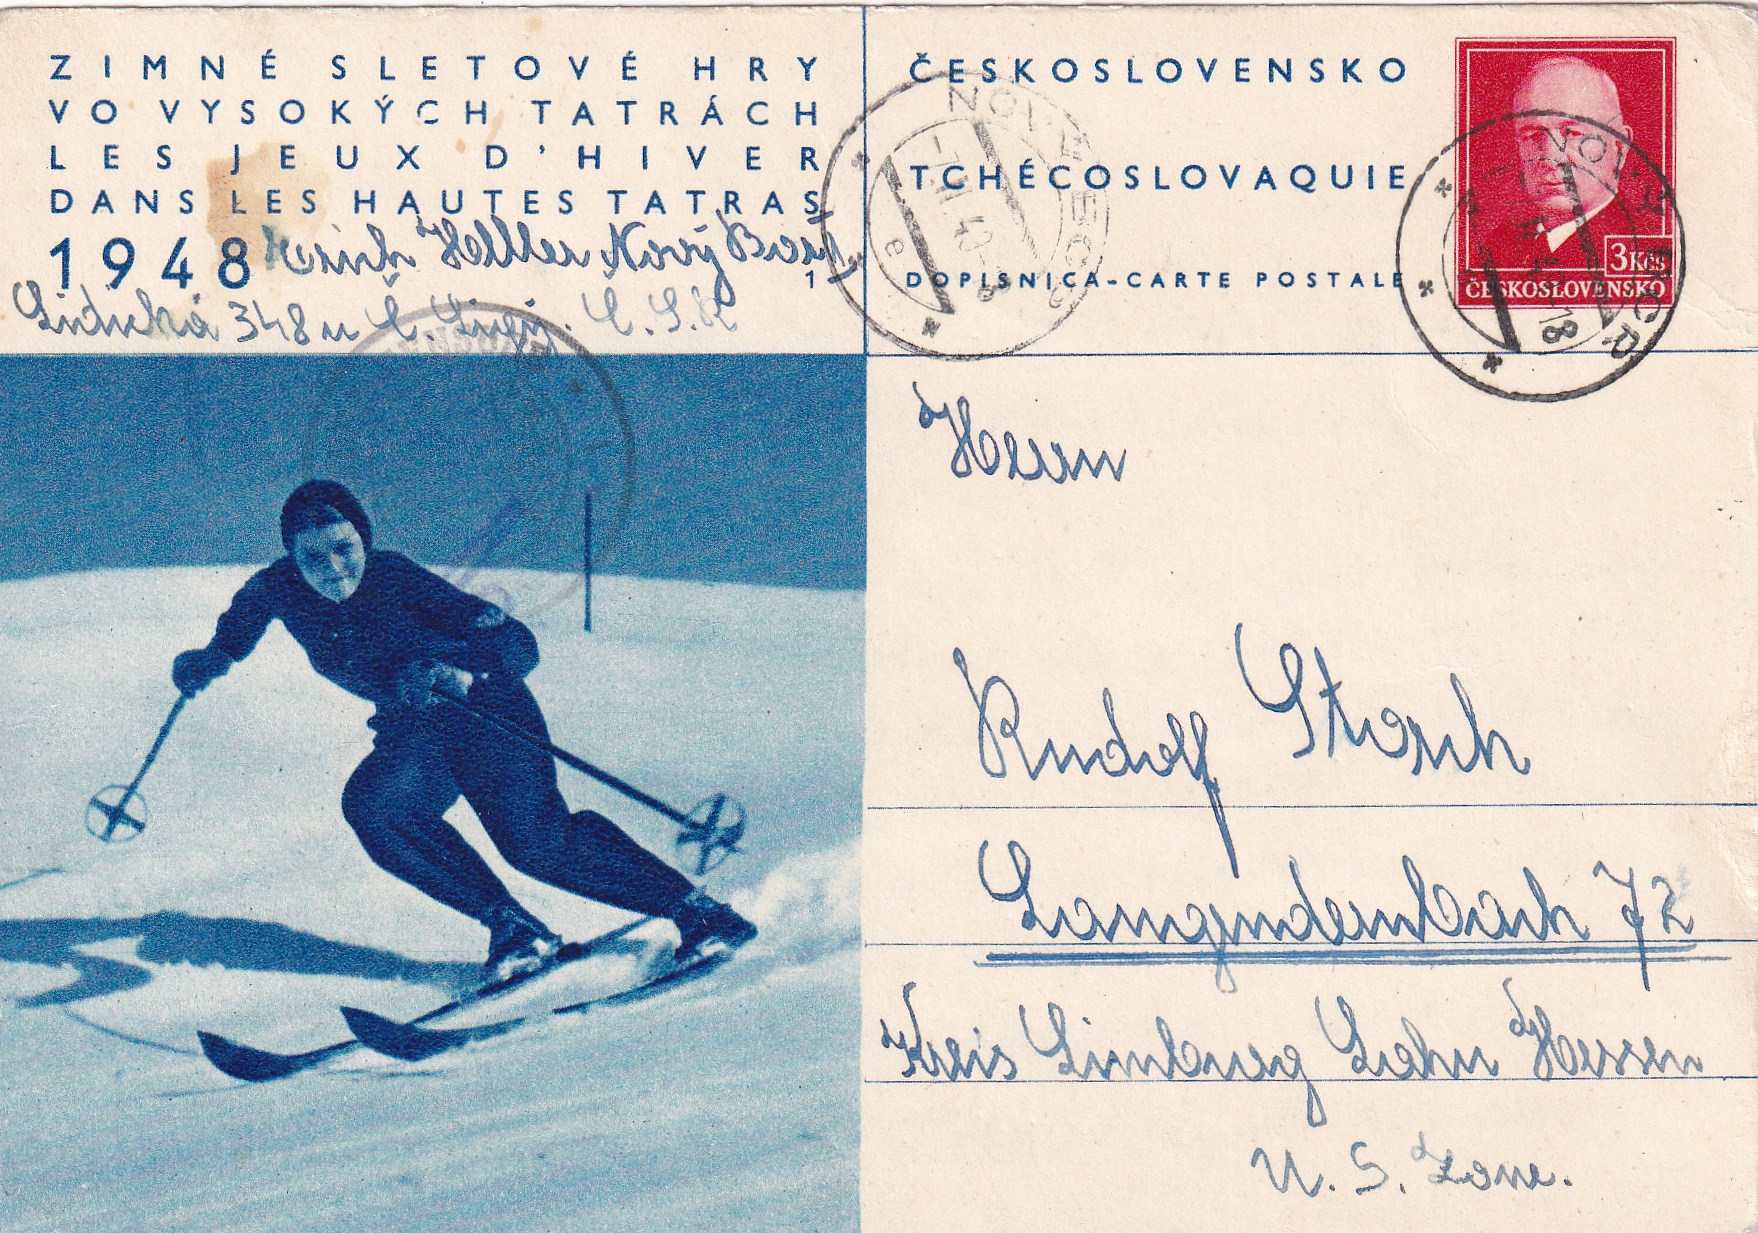 ZIMNÉ SLETOVÉ HRY
VO VYSOKÝCH TATRÁCH
LES JEUX D'HIVER
DANS LES HAUTES TATRAS
1948
1
Erich Heller Nový Bor
Lidická 348 u Č. Lípy. Č.S.R
ČESKOSLOVENSKO
TCHÉCOSLOVAQUIE
DOPISNICA-CARTE POSTALE
3 Kčs
ČESKOSLOVENSKO
NOVÝ BOR
NOVÝ BOR
Herrn
Rudolf Storch
Langendernbach 72
Kreis Limburg Lahn Hessen
U. S. Zone.